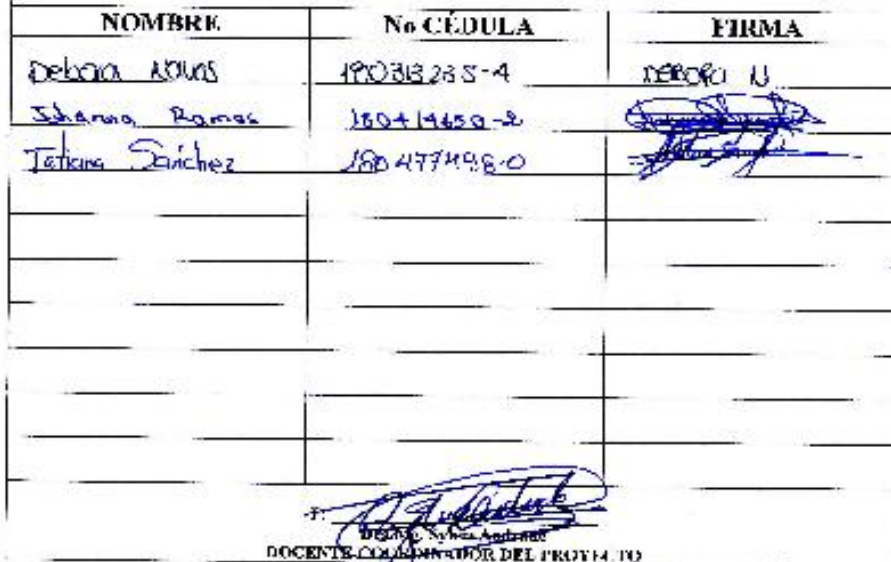 NOMBRE No CÉDULA FIRMA
Debora 190313235-4 DEBORA N
Johanna Ramos 180414650-2
Tatiana Sánchez 180477498-0
F:
Sylvia Andrade
DOCENTE COORDINADOR DEL PROYECTO